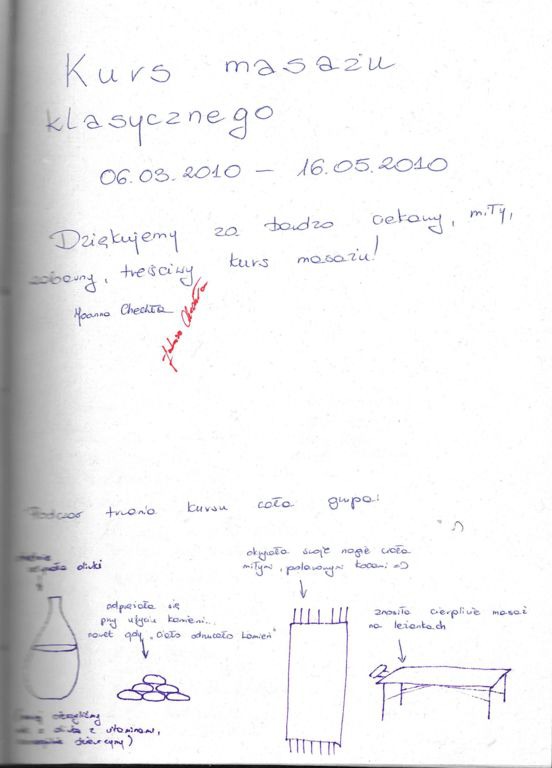 Kurs masażu
klasycznego
06.03.2010 – 16.05.2010
Dziękujemy za bardzo ciekawy, miły,
zabawny, treściwy kurs masażu!
Joanna Chechła
Podczas trwania kursu cała grupa:
:)
oliwki
odprężała się
przy użyciu kamieni...
nawet gdy „ciało odrzucało kamień"
okrywała swoje nagie ciała
miłymi, polarowymi kocami =)
znosiła cierpliwie masaż
na leżankach